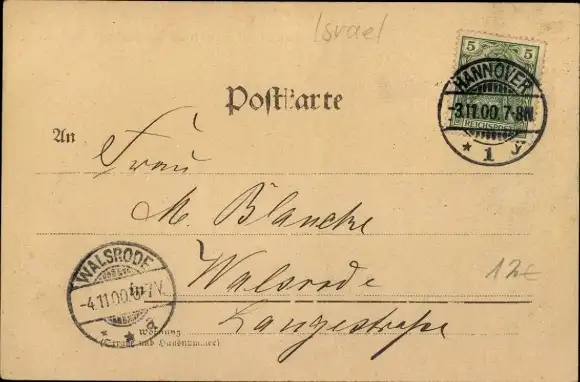 Israel
5 5
REICHSPOST
HANNOVER
-3.11.00.7-8N
* 1 j
Postkarte
An
Frau
M. Blancke
Walsrode
in
Langestraße
Wohnung
(Straße und Hausnummer)
WALSRODE
-4.11.00.6-7V.
12€